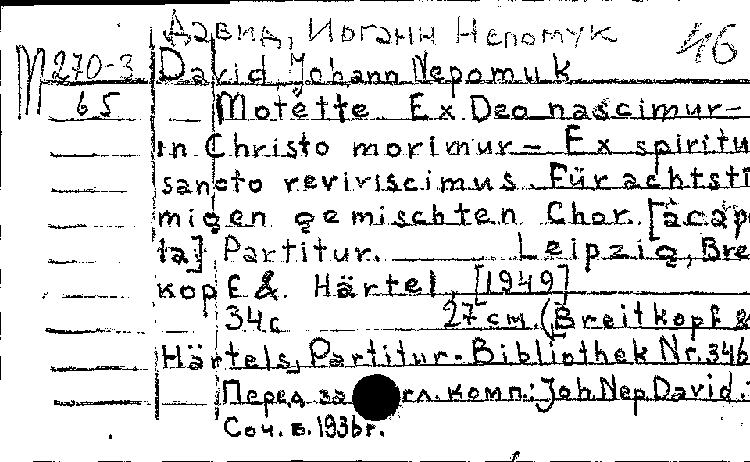 Давид, Иоганн Непомук
46
М 270-3 David, Johann Nepomuk
65 Motette Ex Deo nascimur-
in Christo morimur - Ex spiritu
sancto reviviscimus. Für achtsti
migen gemischten Chor. [acap
ta] Partitur. Leipzig, Bre
kopf & Härtel, [1949]
34c 27 cm. (Breitkopf &
Härtels, Partitur-Bibliothek Nr. 346
Перед загл. комп.: Joh. Nep David.
Соч. в. 1936г.